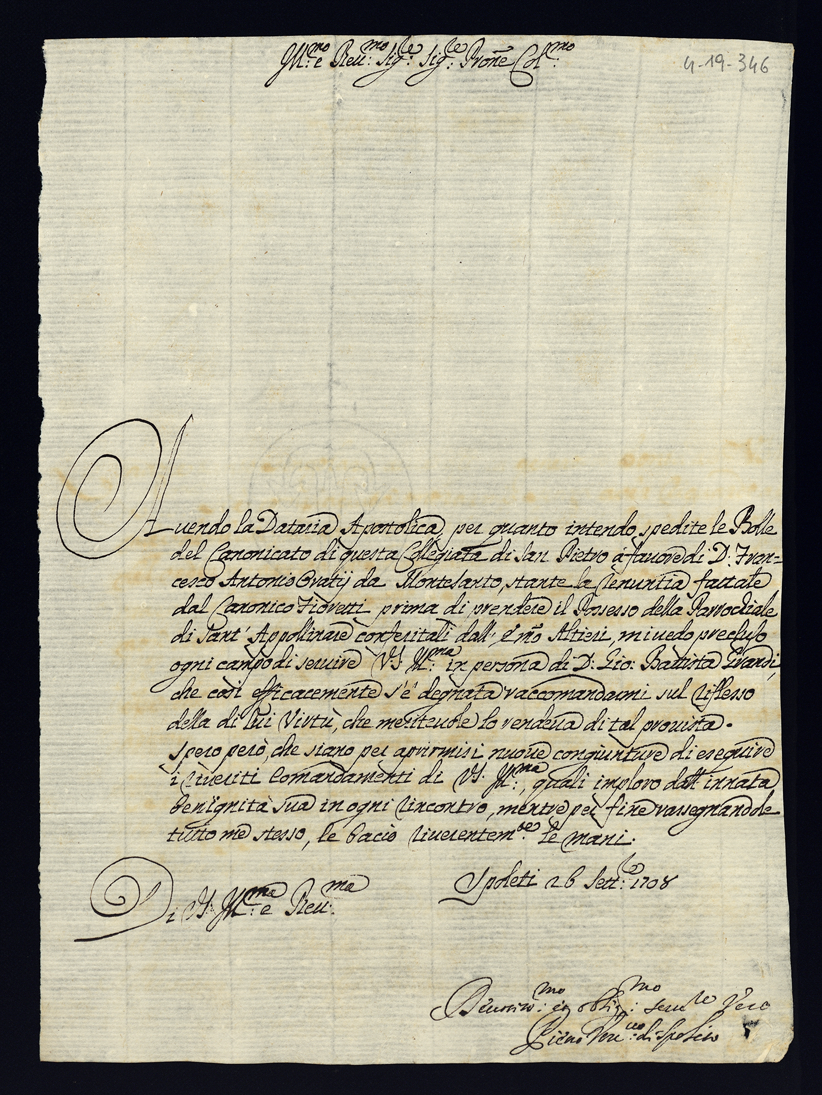 Ill.mo e Reu.mo Sig.re Sig.re Prone Col.mo
4-19-346
Auendo la Dataria Apostolica, per quanto intendo, spedite le Bolle
del Canonicato di questa Collegiata di San Pietro à fauore di D: Fran=
cesco Antonio da Montesanto, stante la renuntia fattale
dal Canonico Fioretti prima di prendere il Possesso della Parrochiale
di Sant' Appollinare conferitali dall' e.mo Altieri, mi uedo precluso
ogni campo di seruire V.S. Ill.ma in persona di D: Gio: Battista Grandi,
che così efficacemente s'è degnata raccomandarmi sul riflesso
della di lui Virtù, che meriteuole lo rendeua di tal prouista.
Spero però, che siano per aprirmisi nuoue congiunture di eseguire
i riueriti Comandamenti di V.S. Ill.ma, quali imploro dall' innata
benignità sua in ogni rincontro, mentre per fine rassegnandole
tutto me stesso, le bacio riuerentem.te le mani.
Spoleti 26 Sett.re 1708
Di V.S. Ill.ma e Reu.ma
Deuotiss.mo ed oblig.mo seru.re uero
di Spoleto